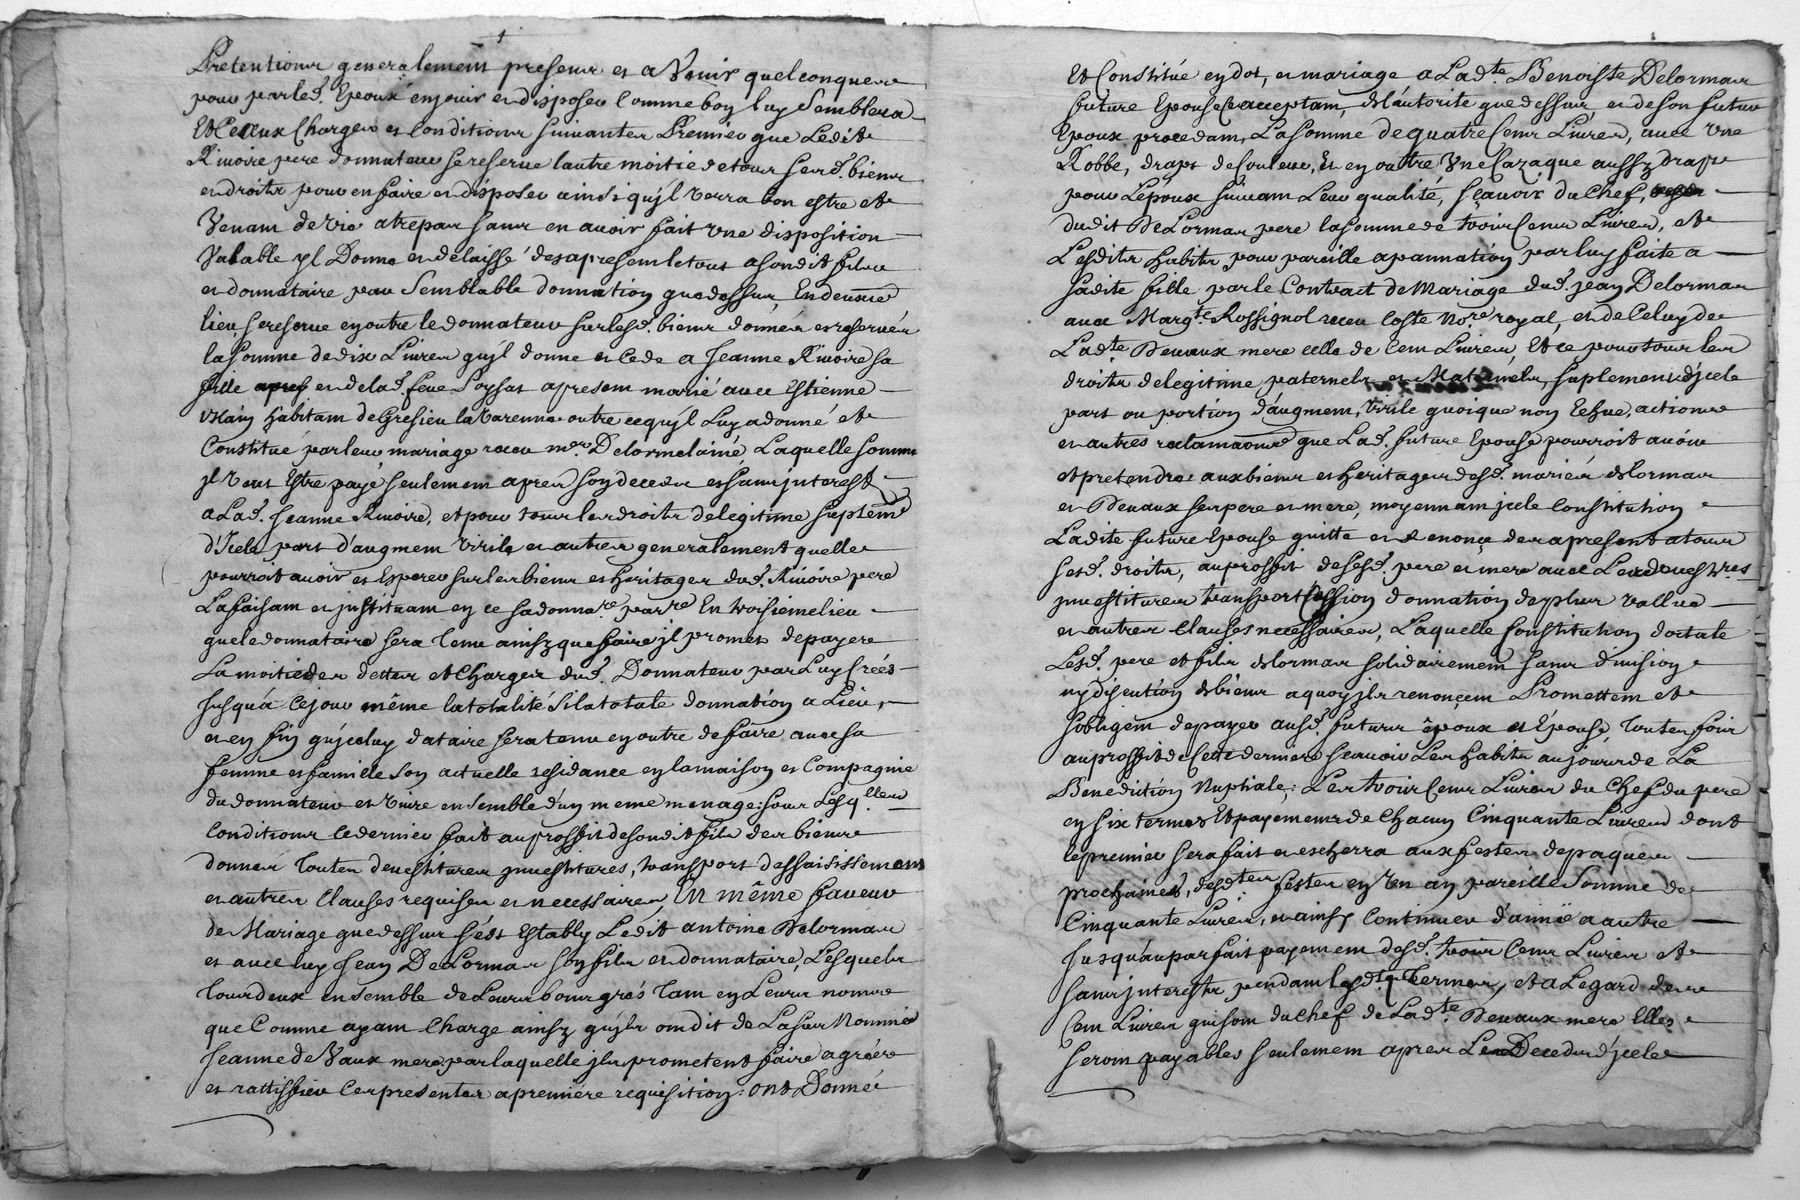 Pretentions generalement presens et a Venir quelconques
pour par led. Epoux en jouir et disposer comme bon luy Semblera
Et Ce aux Charges et Conditions suivantes Premier que Ledit
Rivoire pere donnateur se reserve lautre moitié de tous sesd. biens
et droits pour en faire et disposer ainsi qu'jl verra bon estre et
Venant de vie a trepas sans en avoir fait une disposition
Valable jl Donne et délaissé des apresent le tout a sondit fils
et donnataire par Semblable donnation que dessus, En deuxie
lieu se reserve en outre le donnateur sur lesd. biens donnés et reservés
la somme de dix Livres qu'jl donne et cede a Jeanne Rivoire sa
fille et de lad. feue Poysat apresent marié avec Estienne
habitant de Gresieu la Varenne outre ce qu'jl Luy a donné et
Constitué par leur mariage receu me. Delorme lainé Laquelle somme
jl veut Estre payé seulement apres son deces et sans jnterest
a Lad. Jeanne Rivoire, et pour tous les droits de legitime suplemt
d'Jcele part d'augment Virile et autres generalement quelle
pourroit avoir et Esperer sur les biens et heritages dud. Rivoire pere
La faisant et jnstituant en ce sa donnare. parre. En troisieme lieu
que le donnataire sera tenu ainsy que faire jl promet de payer
La moitié des dettes et Charges dud. Donnateur par Luy Créés
jusqu'á Ce jour même la totalité Si la totale donnation a Lieu,
et en fin qu'jceluy dataire sera tenu en outre de faire avec sa
femme et famille son actuelle residance en la maison et Compagnie
du donnateur et vivre ensemble d'un meme menage: sous Lesqlles
Conditions ce dernier fait au proffit de sondit fils des biens
donnés Toutes devestitures jnvestitures, transport dessaisissement
et autres Clauses requises et necessaires, En même faveur
de Mariage que dessus s'ést Estably Ledit antoine Delormas
et avec luy Jean DeLormas son fils et donnataire, Lesquels
Tous deux ensemble de Leurs bons grés Tant en Leurs noms
que Comme ayant Charge ainsy qu'jls ont dit de La sus Nommée
Jeanne de Vaux mere par laquelle jls prometent faire agréer
et rattiffier Ces presentes a premiére requisition: ont Donné
Et Constitué en dot, et mariage a Ladte. Benoiste Delormas
future Epouse acceptant, de l'áutorité que dessus et de son futur
Epoux procedant, La somme de quatre Cens Livres, avec une
Robbe, draps de Couleur, Et en outre Une Cazaque aussy drap
pour L'épouse suivant Leur qualité, sçavoir du Chef,
dudit DeLormas pere la somme de trois Cens Livres, et
Lesdits habits pour pareille apannation par luy faite a
sadite fille par le Contract de Mariage dud. jean Delormas
avec Margte. Rossignol receu Coste Nore. royal, et de Celuy de
Ladte. Devaux mere celle de Cent Livres, Et ce pour tous les
droits de legitime paternels et Maternels, suplement d'jcele
part ou portion d'áugment, Virile quoique non Echue, actions
et autres reclamations que Lad. future Epouse pourroit avoir
et pretendre aux biens et heritages desd. mariés delormas
et Devaux ses pere et mere, moyennant jcele Constitution
Ladite future Epouse quitte et Renonce des apresent a tous
sesd. droits, au proffit de sesd. pere et mere avec Les devestres
jnvestitures transport Cession donnation de plus vallue
et autres Clauses necessaires, Laquelle Constitution dotale
Lesd. pere et fils delormas solidairement sans division
ny discution de biens a quoy jls renonçent Promettent et
sobligent de payer ausd. futurs époux et Épouse, Toutes fois
au proffit de Cette derniere sçavoir Les habits au jour de La
Bénédiction Nuptiale; Les trois Cens Livres du Chef du pere
en six termes Et payemens de Chacun Cinquante Livres dont
le premier sera fait et escherra aux festes de paques
prochaines, desdtes. festes en Un an pareille Somme de
Cinquante Livres, et ainsy Continuer d'année a autre
Jusqu'au parfait payement desd. trois Cens Livres et
sans jnterests pendant Lesdts. Termes, et a Legard des
Cent Livres qui sont du Chef de Ladte. Devaux mere Elles
seront payables seulement apres Le Deces d'jcele